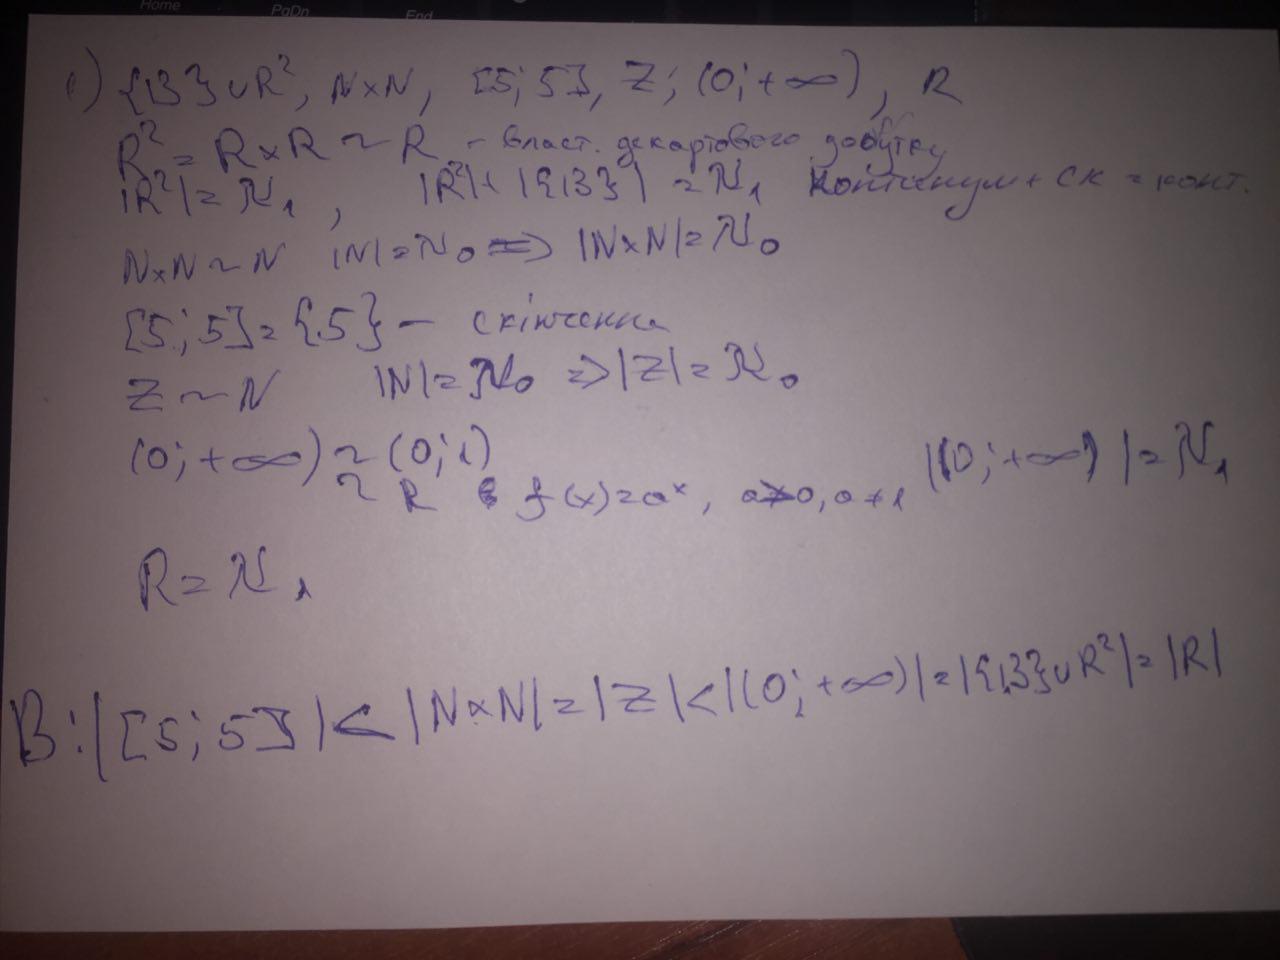 Home PgDn End
1) {13}∪R², N×N, [5; 5], Z; (0; +∞), R
R² = R×R ~ R - власт. декартового добутку
|R²| = ℵ₁, |R²|+|{13}| = ℵ₁ континуум + ск = конт.
N×N ~ N |N| = ℵ₀ => |N×N| = ℵ₀
[5; 5] = {5} - скінченна
Z ~ N |N| = ℵ₀ => |Z| = ℵ₀
(0; +∞) ~ (0; 1) |(0; +∞)| = ℵ₁
~ R f(x) = aˣ, a>0, a≠1
R = ℵ₁
В: |[5; 5]| < |N×N| = |Z| < |(0; +∞)| = |{13}∪R²| = |R|